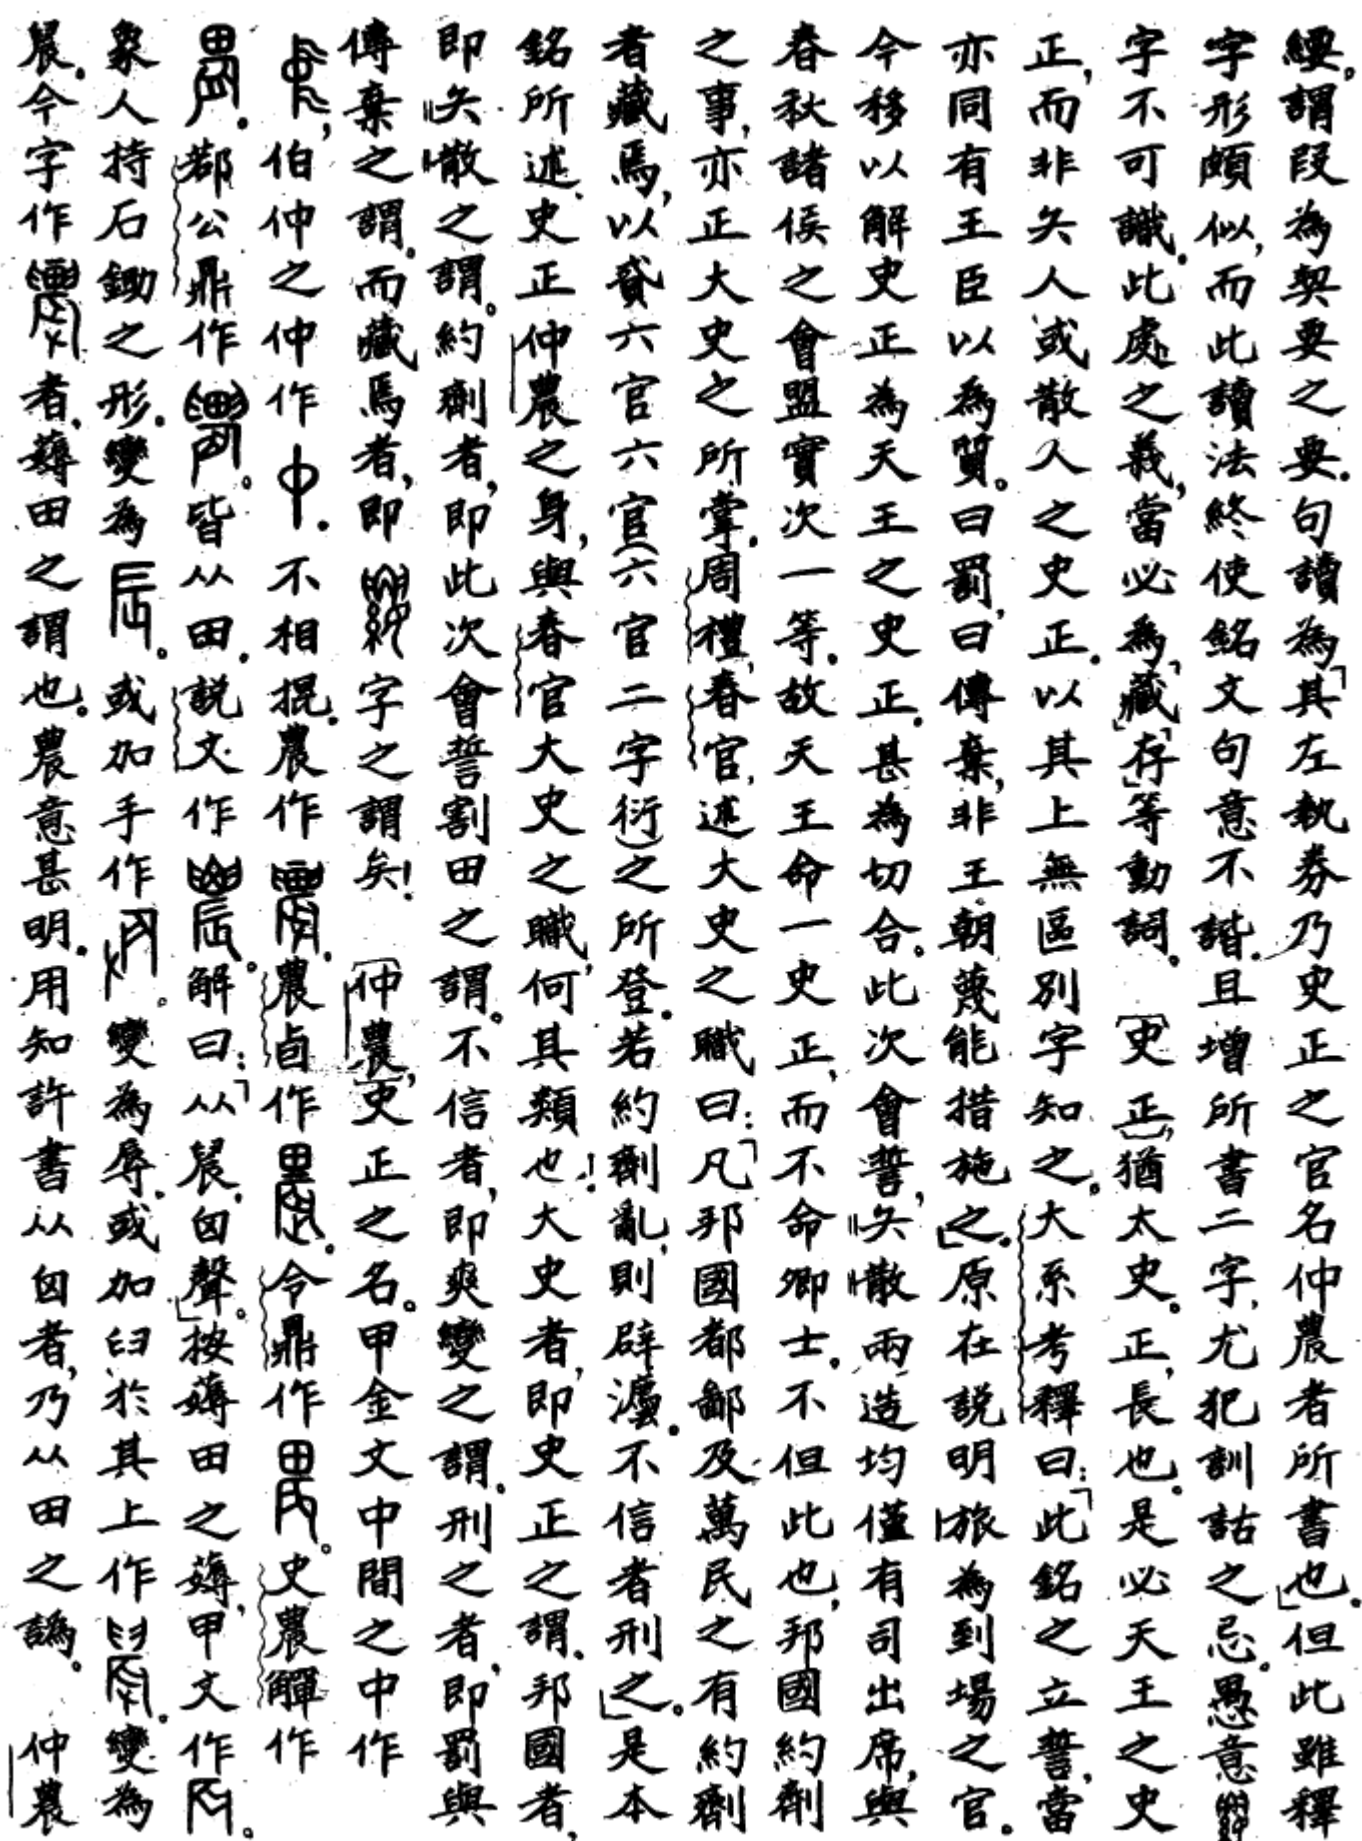 纓。謂段為契要之要。句讀為「其左執券乃史正之官名仲農者所書也」。但此雖釋
字形頗似,而此讀法終使銘文句意不諧。且增所書二字,尤犯訓詁之忌。愚意
字不可識。此處之義,當必為「藏」「存」等動詞。〔史正〕,猶太史。正,長也。是必天王之史
正,而非夨人或散人之史正。以其上無區別字知之。大系考釋曰:「此銘之立誓,當
亦同有王臣以為質。曰罰,曰傳棄,非王朝蔑能措施之」。原在說明旅為到場之官。
今移以解史正為天王之史正。甚為切合。此次會誓,夨散兩造均僅有司出席,與
春秋諸侯之會盟實次一等。故天王命一史正,而不命卿士。不但此也,邦國約劑
之事,亦正大史之所掌。周禮,春官,述大史之職曰:「凡邦國都鄙及萬民之有約劑
者藏焉,以貳六官六官(六官二字衍)之所登。若約劑亂,則辟灋。不信者刑之」。是本
銘所述,史正仲農之身,與春官大史之職,何其類也!大史者,即史正之謂。邦國者,
即夨散之謂。約劑者,即此次會誓割田之謂。不信者,即爽變之謂。刑之者,即罰與
傳棄之謂。而藏焉者,即字之謂矣!〔仲農〕,史正之名。甲金文中間之中作
,伯仲之仲作中。不相掍。農作。農卣作。令鼎作。史農觶作
。都公鼎作。皆从田。說文作。解曰:「从䢅,囟聲」。按薅田之薅,甲文作。
象人持石鋤之形。變為。或加手作。變為辱。或加臼於其上作。變為
䢅。今字作者,薅田之謂也。農意甚明。用知許書从囟者,乃从田之譌。仲農